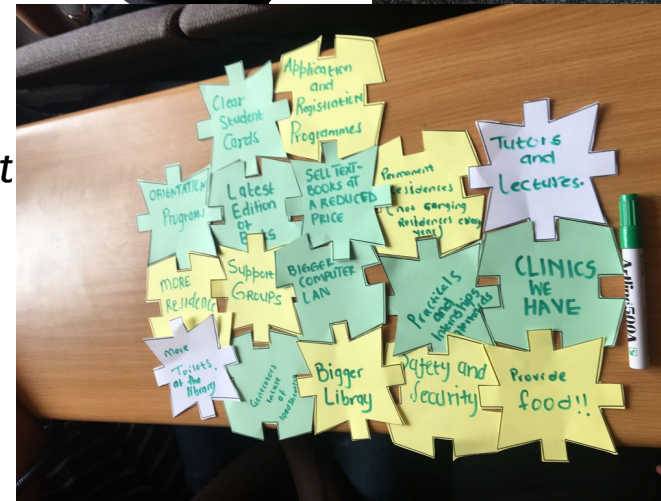 t
Clear
Student
Cards
Application
and
Registration
Programmes
Tutors
and
Lectures.
ORIENTATION
Programs
Latest
Edition
of
SELL TEXT-
BOOKS AT
A REDUCED
PRICE
Permanent
Residences
(not changing
Residences every
year)
MORE
Residence
Support
GROUPS
BIGGER
COMPUTER
LAN
Practicals
and
CLINICS
WE
HAVE
Artline 500A
More
Toilets
at the
library
Generators
incase
of
loadshedding
Bigger
Library
Safety and
Security
Provide
food!!